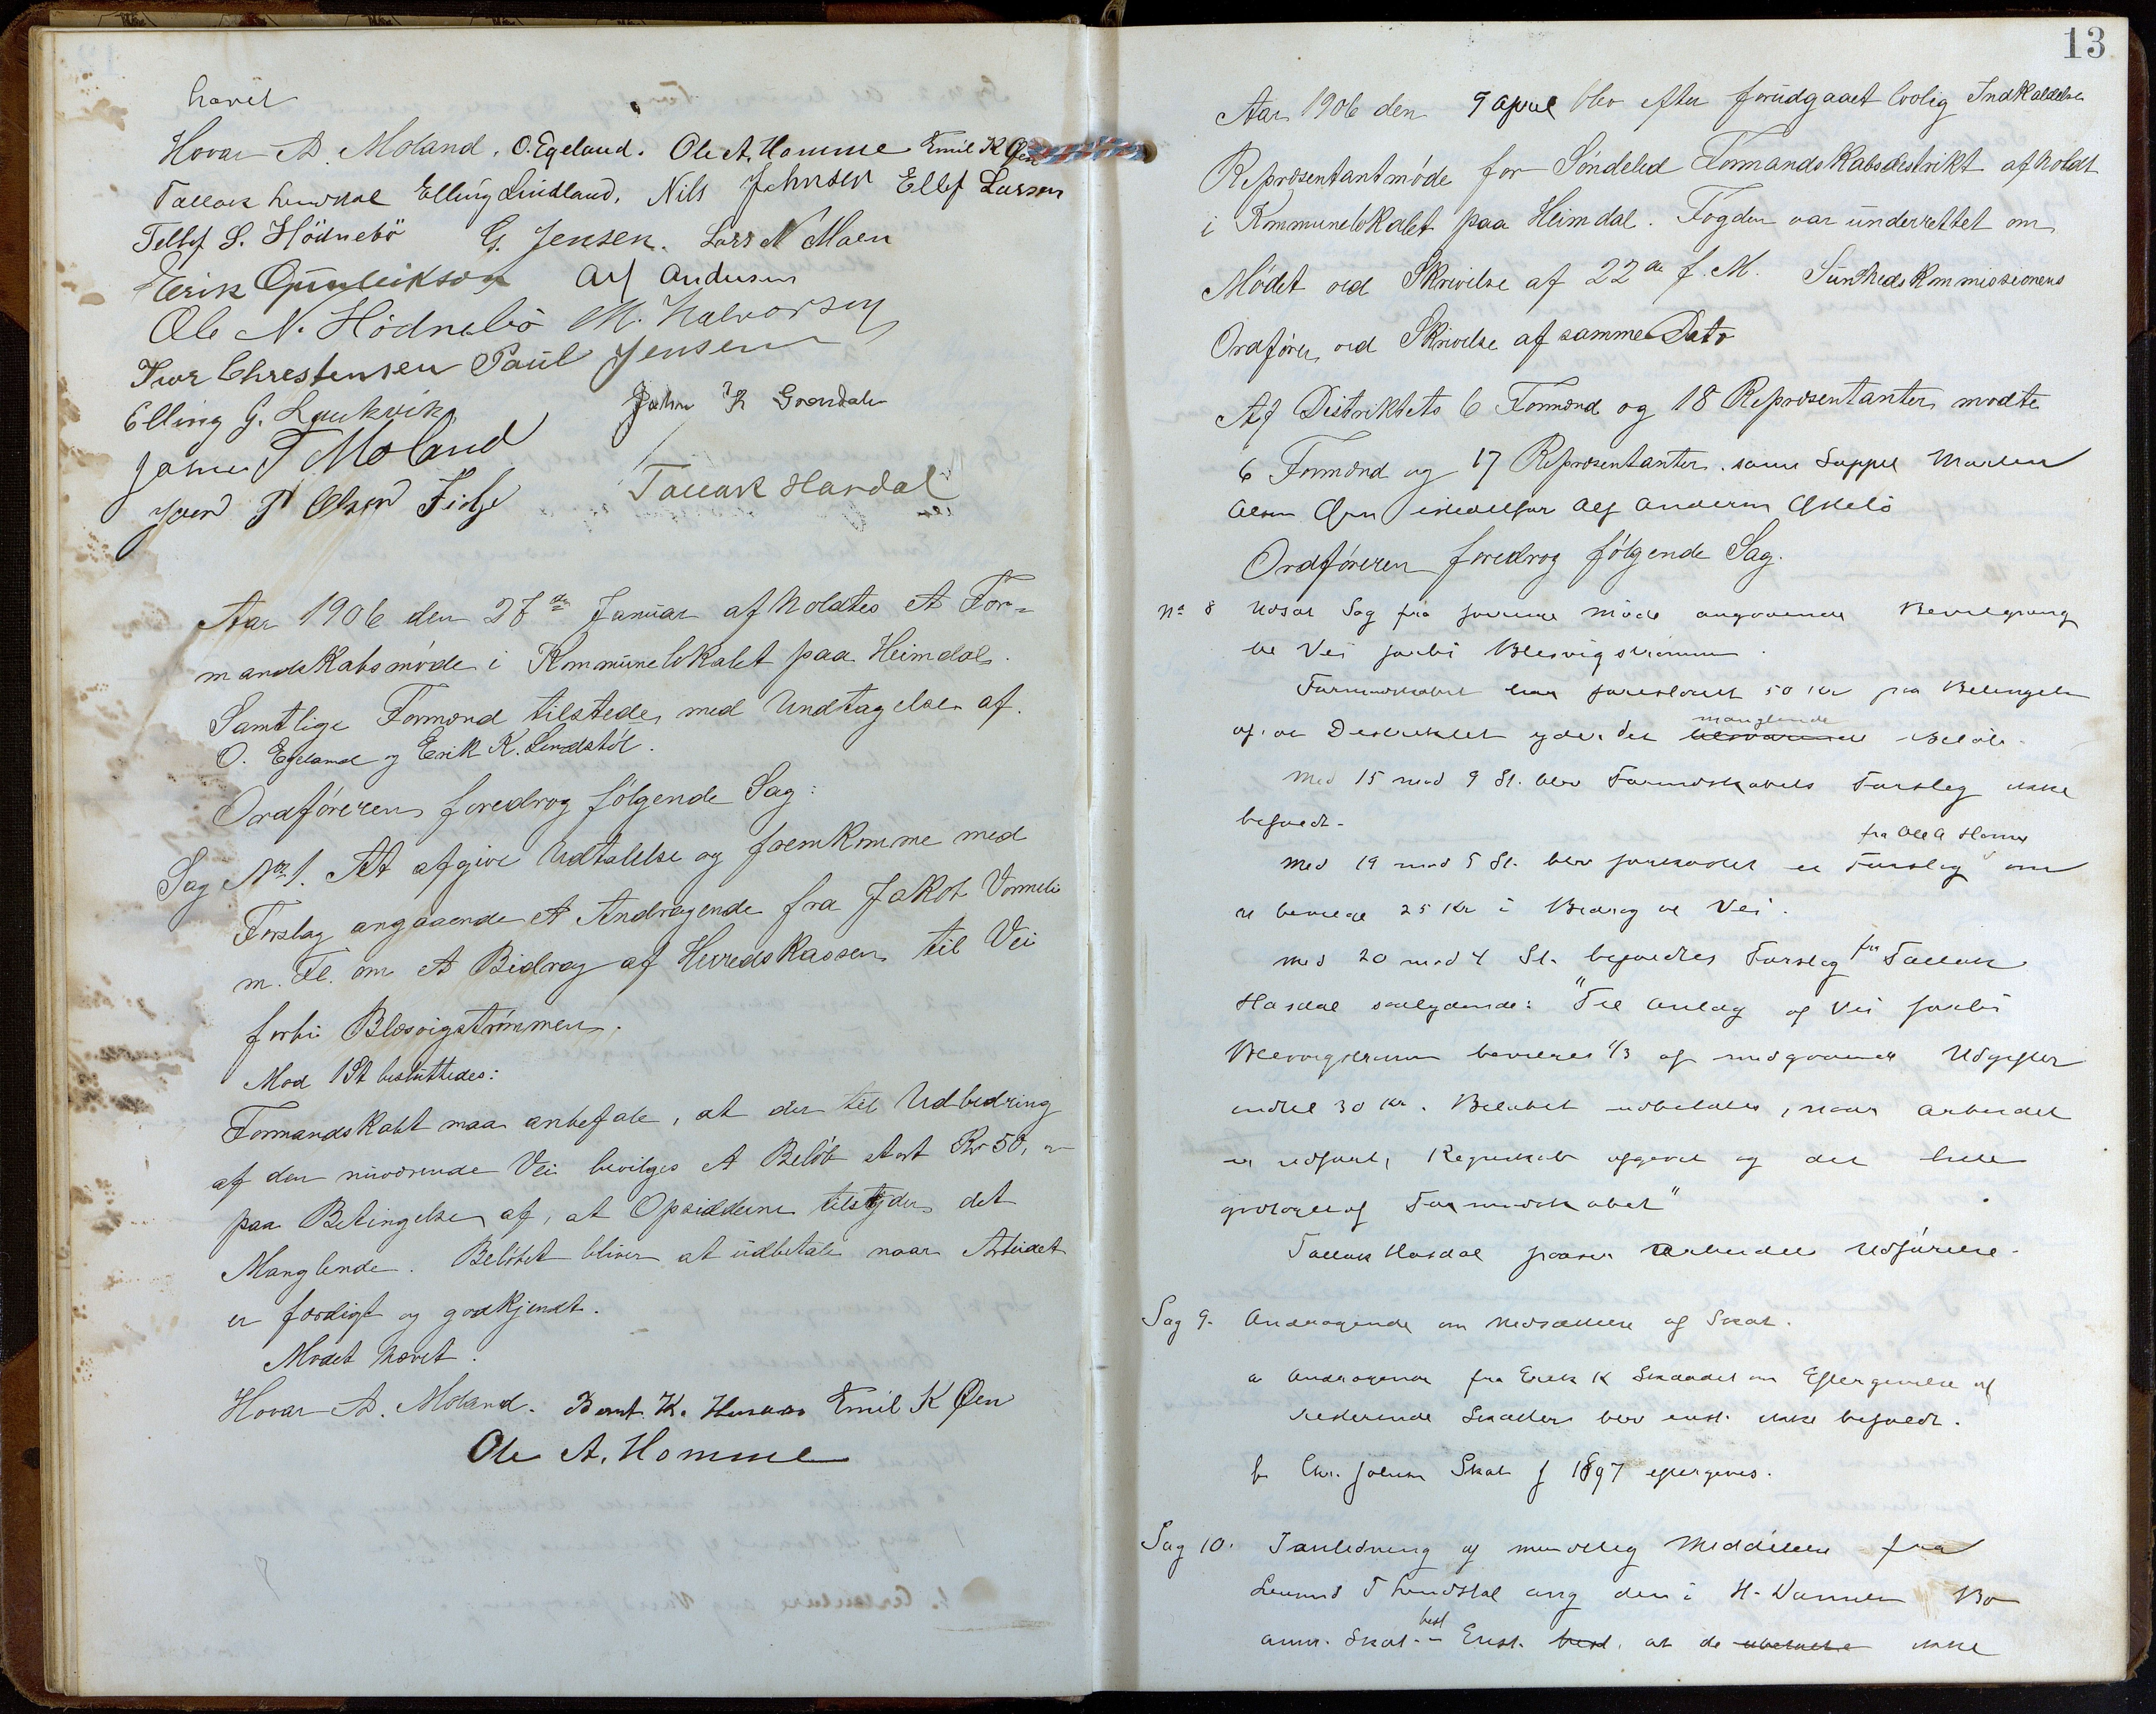 hævet
Hovar A. Moland. O. Egeland. Ole A. Homme Emil K Øen
Tallak Lindstøl Elling Lindland. Nils Johnsen Ellef Larsen
Tellef S. Hödnebö G. Jensen. Lars N Moen
Terik Gunleikson Alf Andersen
Ole N. Hödnebö M. Halvorsen
Iver Chrestensen Paul Jensen
Elling G. Laukvik John K Grøndalen
Jahn T Moland
Jven P Olsen Fidje Tallak Hasdal
Aar 1906 den 27de Januar afholdtes et For-
mandskabsmøde i Kommunelokalet paa Heimdal.
Samtlige Formænd tilstede med Undtagelse af
O. Egeland og Eerik K. Lindstöl.
Ordføreren foredrog følgende Sag:
Sag No 1. At afgive Udtalelse og fremkomme med
Forslag angaaende et Andragende fra Jakob Vormeli
m. Fl. om et Bidrag af Herredskassen til Vei
forbi Blesvigstrømmen.
Mod 1 St besluttedes:
Formandskabt maa anbefale, at der til Udbedring
af den nuværende Vei bevilges et Beløb stort Kr 50,
paa Betingelse af, at Opsidderne tilskyder det
Manglende. Beløbet bliver at udbetale naar Arbeidet
er færdigt og godkjendt.
Mødet hævet.
Hovar A. Moland. Bernt K. Emil K Øen
Ole A. Homme
13
Aar 1906 den 9 april blev efter forudgaaet lovlig Indkaldelse
Repræsentantmøde for Söndeled Formandskabsdistrikt afholdt
i Kommunelokalet paa Heimdal. Fogden var underrettet om
Mødet ved Skrivelse af 22de f. M. Sundhedskommissionens
Ordfører ved Skrivelse af samme Dato
Af Distriktets 6 Formænd og 18 Repræsentanter mødte
6 Formænd og 17 Repræsentanter. samt Suppel Marten
Olsen Øen istedetfor Alf Andersen Askelö
Ordføreren foredrog følgende Sag.
No 8 Udsat Sag fra forrige møde angaaende Bevilgning
til Vei forbi Blesvigstrømmen.
Formandskabet har foreslaaet 50 Kr paa Betingelse
af, at Distriktet yder det manglende Beløb.
Med 15 mod 9 St. blev Formdskabets Forslag ikke
bifaldt.
Med 19 mod 5 St. blev forkastet et Forslag fra Ole A Homme om
at bevilge 25 Kr i Bidrag til Vei.
Med 20 mod 4 St. bifaldtes Forslag fra Tallak
Hasdal saalydende: "Til Anlæg af Vei forbi
Blesvigstrømm bevilges 1/3 af medgaaende Udgifter
indtil 30 Kr. Beløbet udbetales, naar Arbeidet
er udført, Regnskab afgivet og det hele
godtaget af Formandskabet"
Tallak Hasdal paaser Arbeidets Udførelse.
Sag 9. Andragende om Nedsættelse af Skat.
a Andragende fra Erik K Skaadel om Eftergivelse af
resterende Skatter blev enst. ikke bifaldt.
b Chr. Johnsen Skat f 1897 eftergives.
Sag 10. I anledning af mundtlig Meddelelse fra
Lensmd T Lindstöl ang den i H. Bo
anm. Skat. best Enst. best. at de ikke